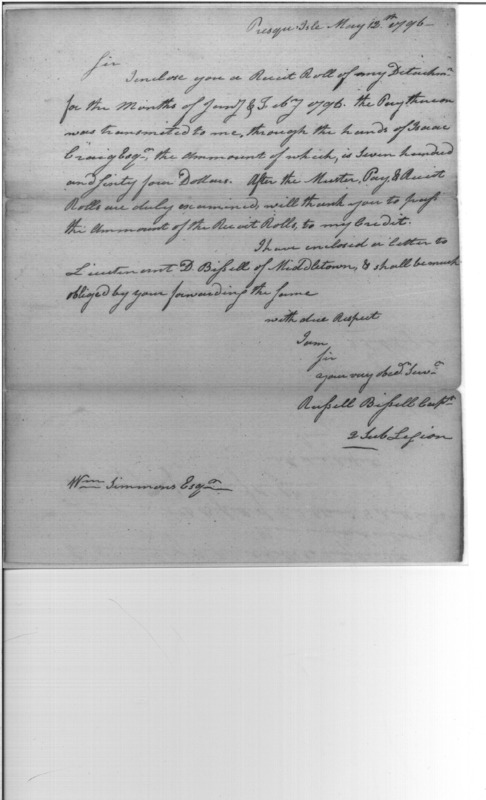 Presqu Isle May 12th 1796—
Sir
I enclose you a Receit Roll of my Detachmt
for the Months of Jany & Feby 1796. the Pay thereon
was transmeted to me, through the hands of Isaac
Craig Esqr, the Ammount of which, is Seven hundred
and Sixty four Dollars. After the Muster, Pay, & Receit
Rolls are duly examined, will thank you to pass
the Ammount of the Receit Rolls, to my Credit.
I have enclosed a letter to
Lieutenant D. Bissell of Middletown, & shall be much
obliged by your forwarding the same
with due Respect
I am
Sir
your very Obedt Servt
Russell Bissell Captn
2 Sub Legion
Wm Simmons Esqr